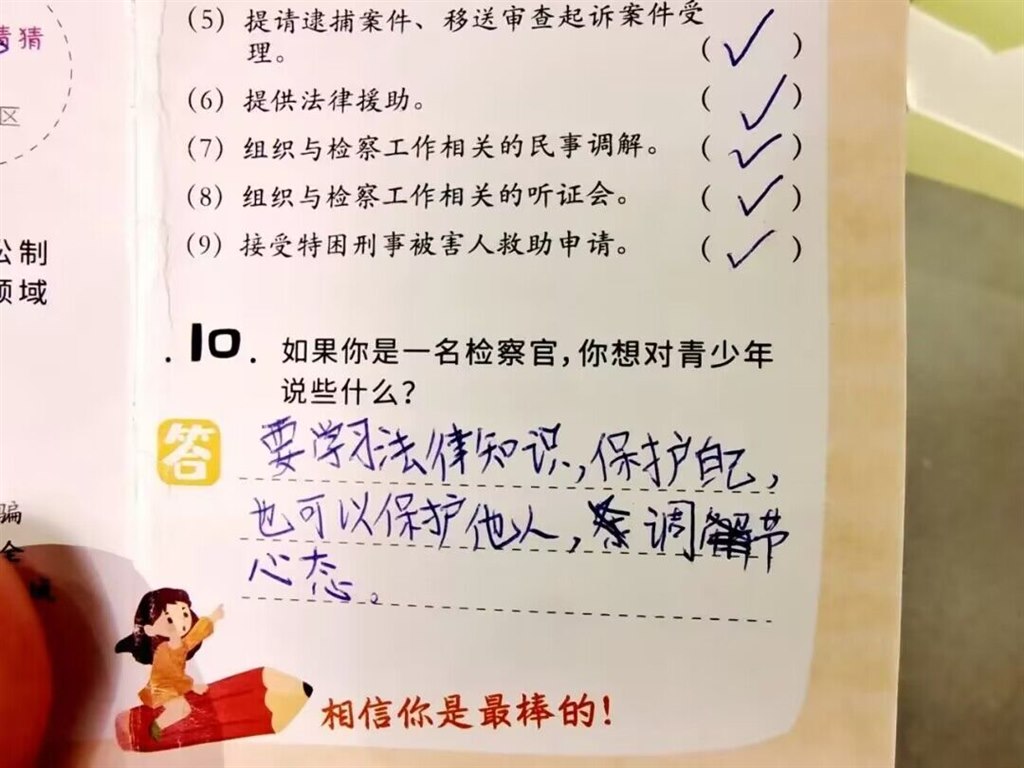 猜
区
公制
领域
骗
全
(5) 提请逮捕案件、移送审查起诉案件受
理。 (✓)
(6) 提供法律援助。 (✓)
(7) 组织与检察工作相关的民事调解。 (✓)
(8) 组织与检察工作相关的听证会。 (✓)
(9) 接受特困刑事被害人救助申请。 (✓)
10. 如果你是一名检察官,你想对青少年
说些什么?
答
要学习法律知识,保护自己,
也可以保护他人,调节
心态。
相信你是最棒的!